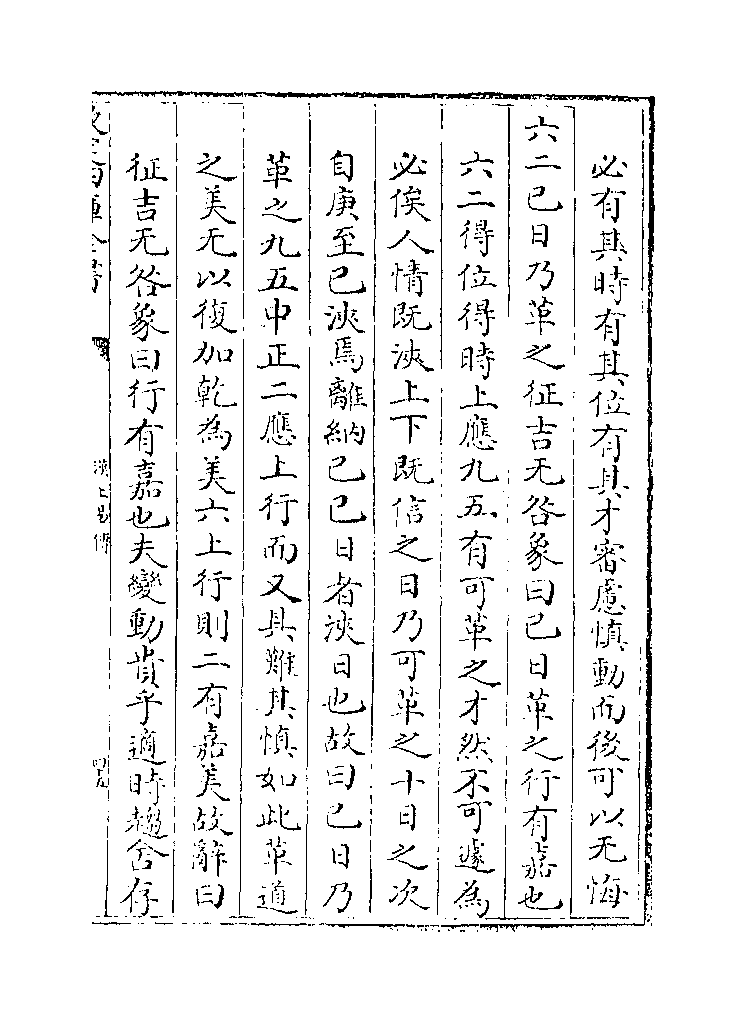 必有其時有其位有其才審慮慎動而後可以无悔
六二巳日乃革之征吉无咎象曰巳日革之行有嘉也
六二得位得時上應九五有可革之才然不可遽為
必俟人情既浹上下既信之日乃可革之十日之次
自庚至巳浹焉離納已巳日者浹日也故曰巳日乃
革之九五中正二應上行而又其難其慎如此革道
之美无以復加乾為美六上行則二有嘉美故辭曰
征吉无咎象曰行有嘉也夫變動貴乎適時趨舍存
漢上易傳